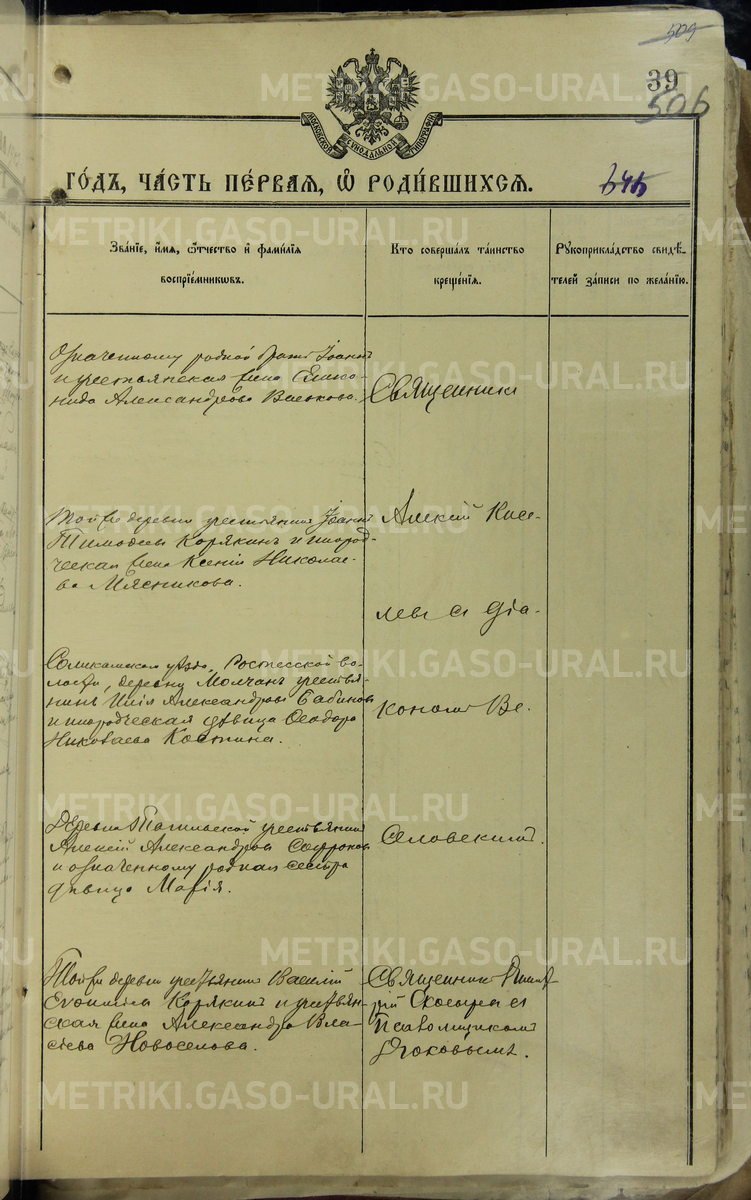 509
39
506
МОСКОВСКОЙ СѴНОДАЛЬНОЙ ТИПОГРАФІИ
ГО́ДЪ, ЧА́СТЬ ПЕ́РВАЯ, Ѡ РОДИ́ВШИХСЯ.
Зва́нїе, и́мя, ѻ́тчество и҆ фами́лїя
воспрїе́мникѡвъ.
Кто соверша́лъ та́инство
креще́нїя.
Рꙋкоприкла́дство свидѣ́-
телей за́писи по жела́нїю.
Означенному родной братъ Іоаннъ
и крестьянская жена
нида Александрова
Священникъ
Той же деревни крестьянинъ Іоаннъ
Тимофеевъ Корякинъ и инород-
ческая жена Ксенія Николае-
ва Мясникова.
Алексій Кисе-
левъ съ діа-
Соликамскаго уѣзда, Ростесской во-
лости, деревни Молчанъ крестья-
нинъ Илія Александровъ Бабиновъ
и инородческая дѣвица Ѳеодора
Николаева Костина.
кономъ Ве-
Деревни Тагильской крестьянинъ
Алексій Александровъ
и означенному родная сестра
дѣвица Марія.
селовскимъ.
Той же деревни крестьянинъ Василій
Корякинъ и крестьян-
ская жена Александра Вла-
сьева Новоселова.
Священникъ
рій Скосыревъ съ
Псаломщикомъ
METRIKI.GASO-URAL.RU